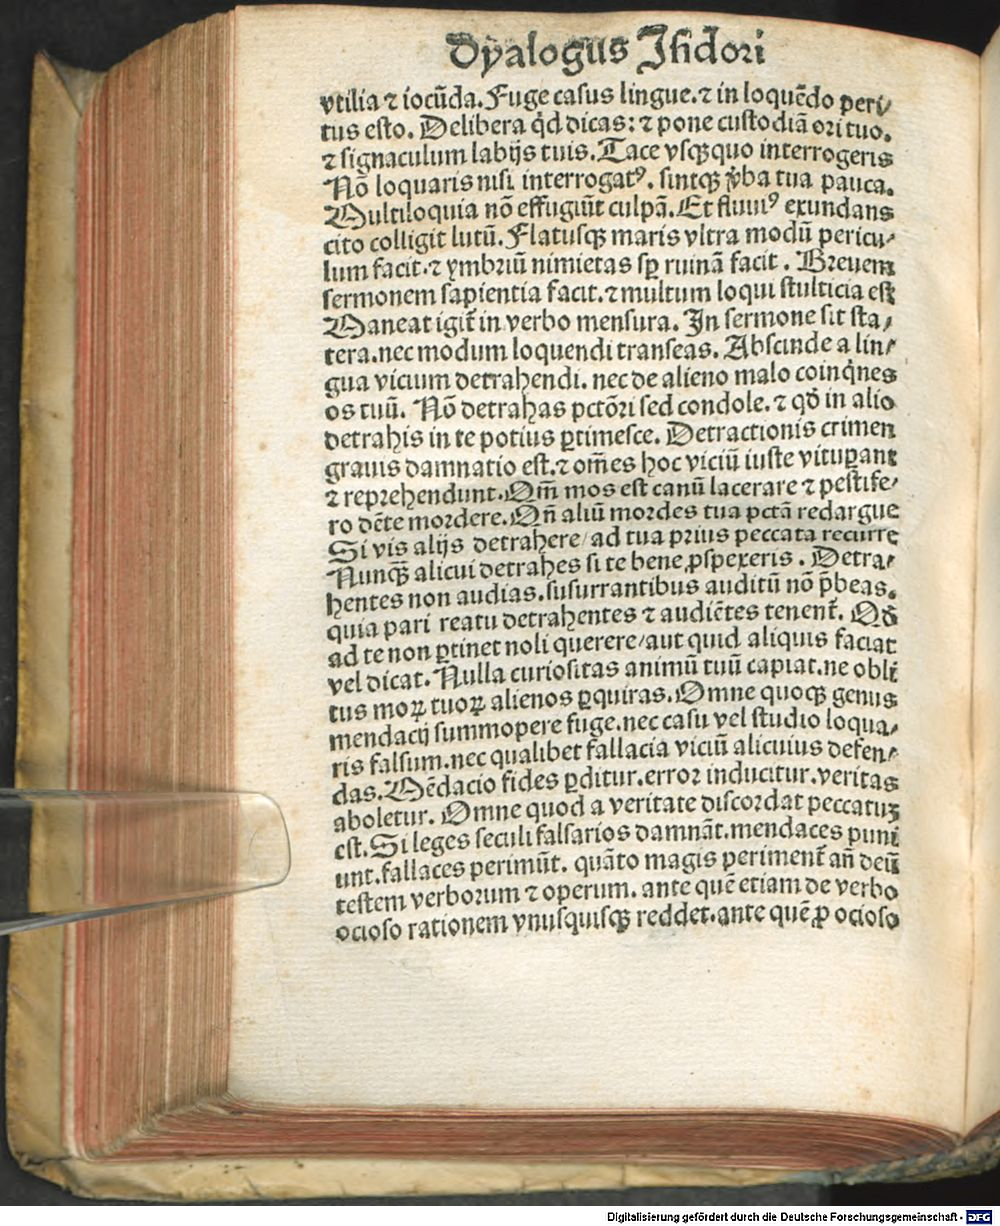 Dyalogus Isidori
vtilia ⁊ iocūda. Fuge casus lingue. ⁊ in loquēdo peri/
tus esto. Delibera qd̛ dicas: ⁊ pone custodiā ori tuo.
⁊ signaculum labijs tuis. Tace vsqꝫ quo interrogeris
Nō loquaris nisi interrogatꝰ. sintqꝫ v̓ba tua pauca.
Multiloquia nō effugiūt culpā. Et fluuiꝰ exundans
cito colligit lutū. Flatusqꝫ maris vltra modū pericu/
lum facit. ⁊ ymbriū nimietas sꝑ ruinā facit. Breuem
sermonem sapientia facit. ⁊ multum loqui stulticia est
Maneat igit̄ in verbo mensura. In sermone sit sta/
tera. nec modum loquendi transeas. Abscinde a lin/
gua vicium detrahendi. nec de alieno malo coinq̇nes
os tuū. Nō detrahas pctōri sed condole. ⁊ qd̛ in alio
detrahis in te potius ꝑtimesce. Detractionis crimen
grauis damnatio est. ⁊ om̄es hoc viciū iuste vituꝑant
⁊ reprehendunt. Qm̄ mos est canū lacerare ⁊ pestife/
ro dēte mordere. Qn̄ aliū mordes tua pctā redargue
Si vis alijs detrahere/ ad tua prius peccata recurre
Nunqꝫ̄ alicui detrahes si te bene ꝓspexeris. Detra/
hentes non audias. susurrantibus auditū nō p̄beas.
quia pari reatu detrahentes ⁊ audiētes tenent̄. Qd̛
ad te non ꝑtinet noli querere/ aut quid aliquis faciat
vel dicat. Nulla curiositas animū tuū capiat. ne obli
tus moꝝ tuoꝝ alienos ꝑquiras. Omne quoqꝫ genus
mendacij summopere fuge. nec casu vel studio loqua/
ris falsum. nec qualibet fallacia viciū alicuius defen/
das. Mēdacio fides ꝑditur. error inducitur. veritas
aboletur. Omne quod a veritate discordat peccatuꝫ
est. Si leges seculi falsarios damnāt. mendaces puni
unt. fallaces perimūt. quāto magis periment̄ an̄ deū
testem verborum ⁊ operum. ante quē etiam de verbo
ocioso rationem vnusquisqꝫ reddet. ante quē ꝓ ocioso
Digitalisierung gefördert durch die Deutsche Forschungsgemeinschaft - DFG